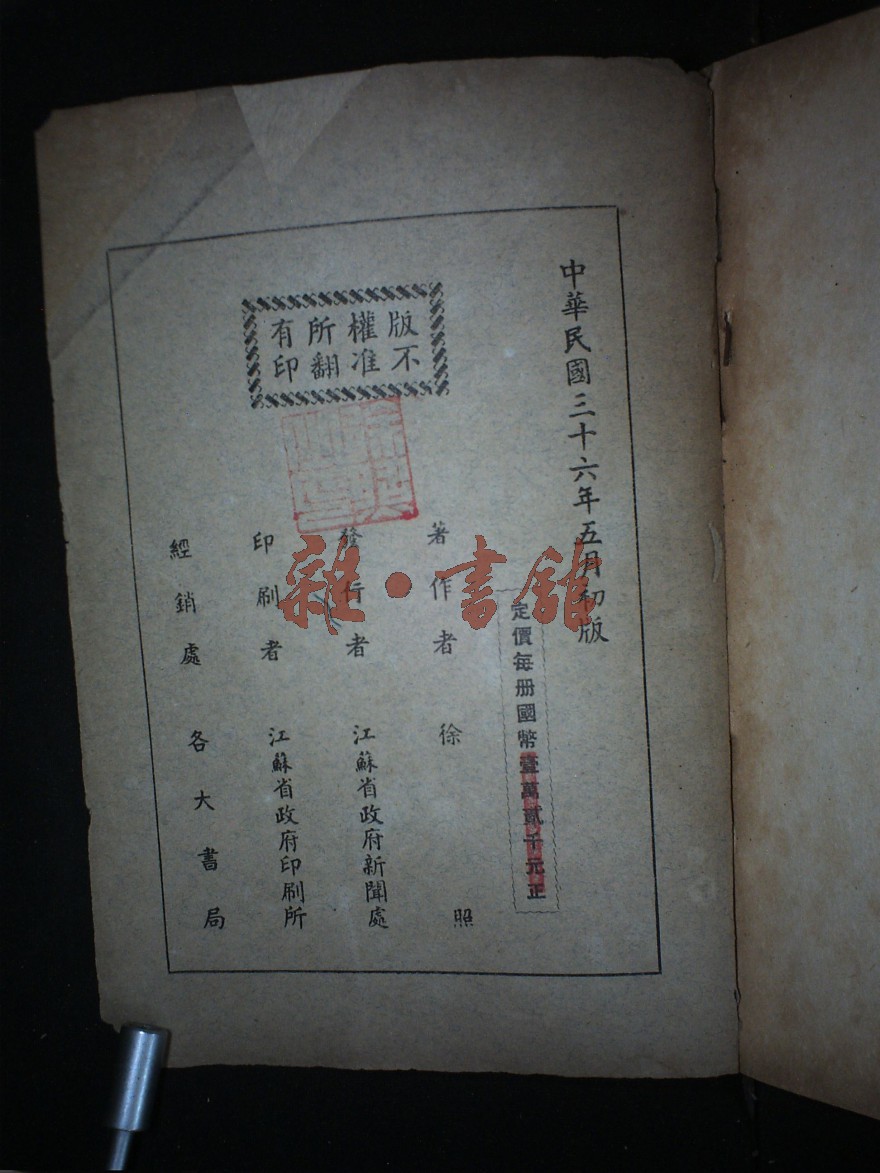 中華民國三十六年五月初版
定價每册國幣壹萬貳千元正
版權所有
不准翻印
著作者 徐照
發行者 江蘇省政府新聞處
印刷者 江蘇省政府印刷所
經銷處 各大書局
雜·書館